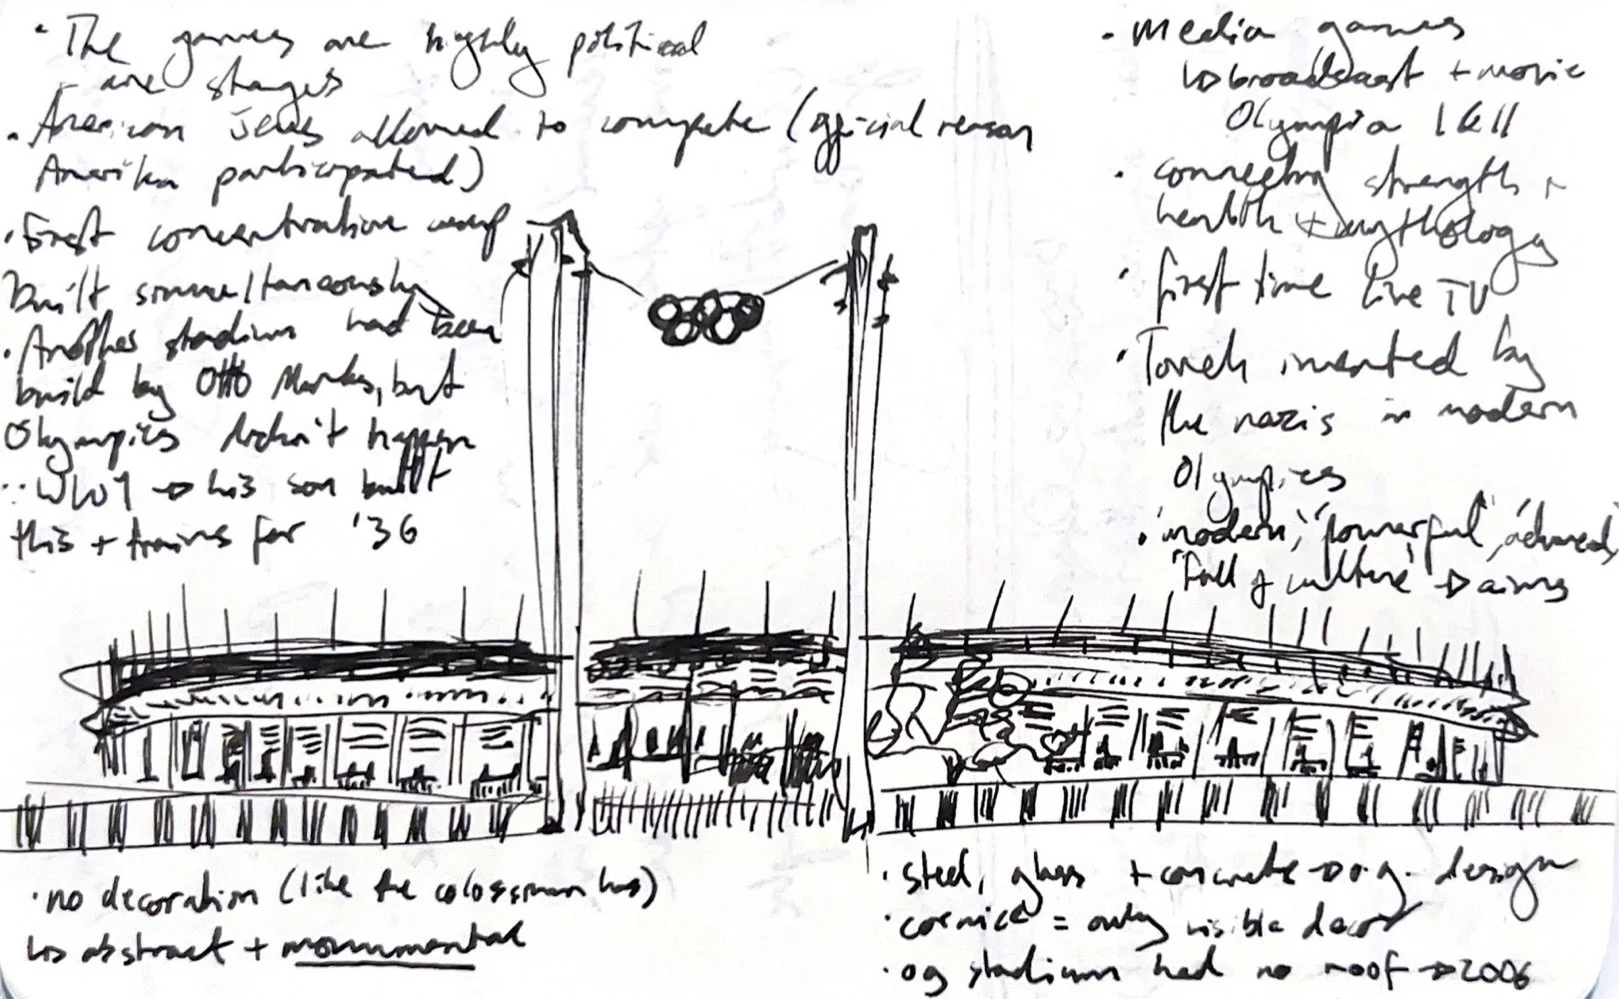 · The games are highly political
↳ are stages
· American Jews allowed to compete (official reason
Amerika participated)
· First concentration camp
built simultaneously
· Another stadium had been
build by Otto March, but
Olympics didn't happen
∵ WW1 → his son built
this + trains for '36
· media games
↳ broadcast + movie
Olympia I & II
· connecting strength +
health + mythology
· first time live TV
· Torch invented by
the nazis in modern
Olympics
· 'modern', 'powerful', 'advanced',
'full of culture' → aims
· no decoration (like the colosseum has)
↳ abstract + monumental
· steel, glass + concrete → o.g. design
· cornice = only visible decor
· og stadium had no roof → 2006